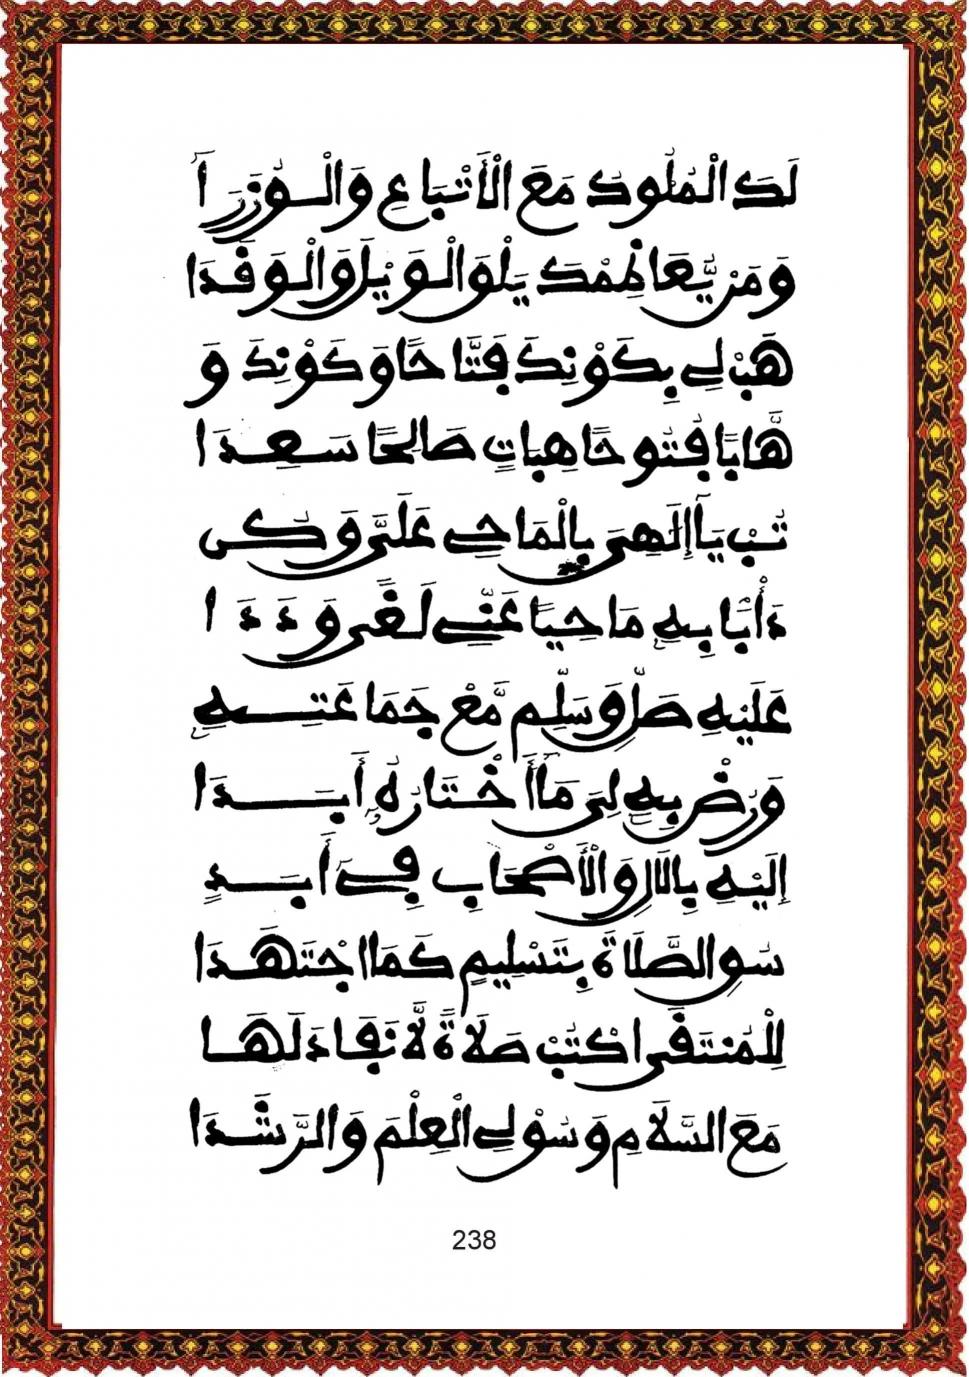 لَكَ الْمُلُوكُ مَعَ الْأَتْبَاعِ وَالْوُزَرَا
وَمَنْ يُعَانِدْكَ يَلْوَ الْوَيْلَ وَالْوَفَدَا
هَبْ لِي بِكَوْنِكَ فَتَّاحًا وَكَوْنِكَ وَ
هَّابًا فُتُوحًا هِبَاتٍ صَالِحًا سَعِدَا
تُبْ يَا إِلَهِيَ بِالْمَاحِي عَلَيَّ وَكُن
دَأْبًا بِهِ مَاحِيًا عَنِّي لَغًى وَدَدَا
عَلَيْهِ صَلِّ وَسَلِّم مَّعْ جَمَاعَتِهِ
وَرُضْ بِهِ لِيَ مَا أَخْتَارُهُ أَبَدَا
إِلَيْهِ بِالْآلِ وَالْأَصْحَابِ فِي أَبَدٍ
سُقِ الصَّلَاةَ بِتَسْلِيمٍ كَمَا اجْتَهَدَا
لِلْمُنتَقَى اكْتُبْ صَلَاةً لَّا نَفَادَ لَهَا
مَعَ السَّلَامِ وَسُقْ لِي الْعِلْمَ وَالرَّشَدَا
238